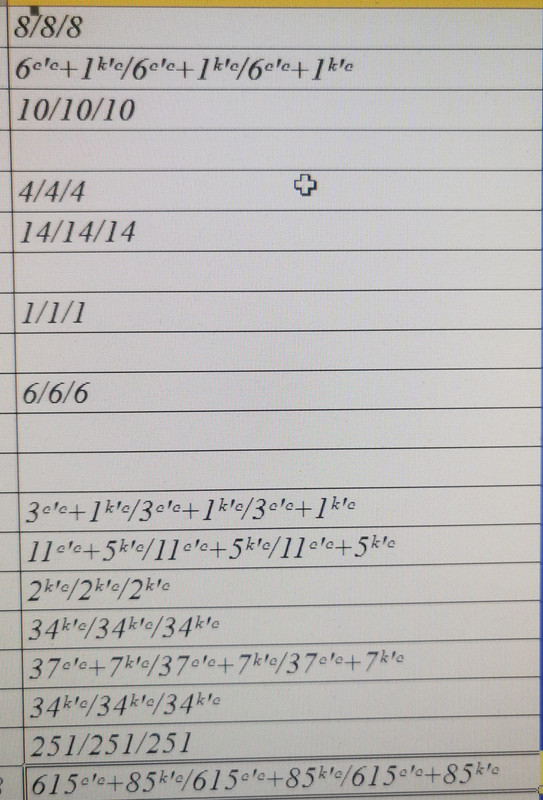 8/8/8
6ᶜ'ᶜ+1ᵏ'ᶜ/6ᶜ'ᶜ+1ᵏ'ᶜ/6ᶜ'ᶜ+1ᵏ'ᶜ
10/10/10
4/4/4
14/14/14
1/1/1
6/6/6
3ᶜ'ᶜ+1ᵏ'ᶜ/3ᶜ'ᶜ+1ᵏ'ᶜ/3ᶜ'ᶜ+1ᵏ'ᶜ
11ᶜ'ᶜ+5ᵏ'ᶜ/11ᶜ'ᶜ+5ᵏ'ᶜ/11ᶜ'ᶜ+5ᵏ'ᶜ
2ᵏ'ᶜ/2ᵏ'ᶜ/2ᵏ'ᶜ
34ᵏ'ᶜ/34ᵏ'ᶜ/34ᵏ'ᶜ
37ᶜ'ᶜ+7ᵏ'ᶜ/37ᶜ'ᶜ+7ᵏ'ᶜ/37ᶜ'ᶜ+7ᵏ'ᶜ
34ᵏ'ᶜ/34ᵏ'ᶜ/34ᵏ'ᶜ
251/251/251
615ᶜ'ᶜ+85ᵏ'ᶜ/615ᶜ'ᶜ+85ᵏ'ᶜ/615ᶜ'ᶜ+85ᵏ'ᶜ